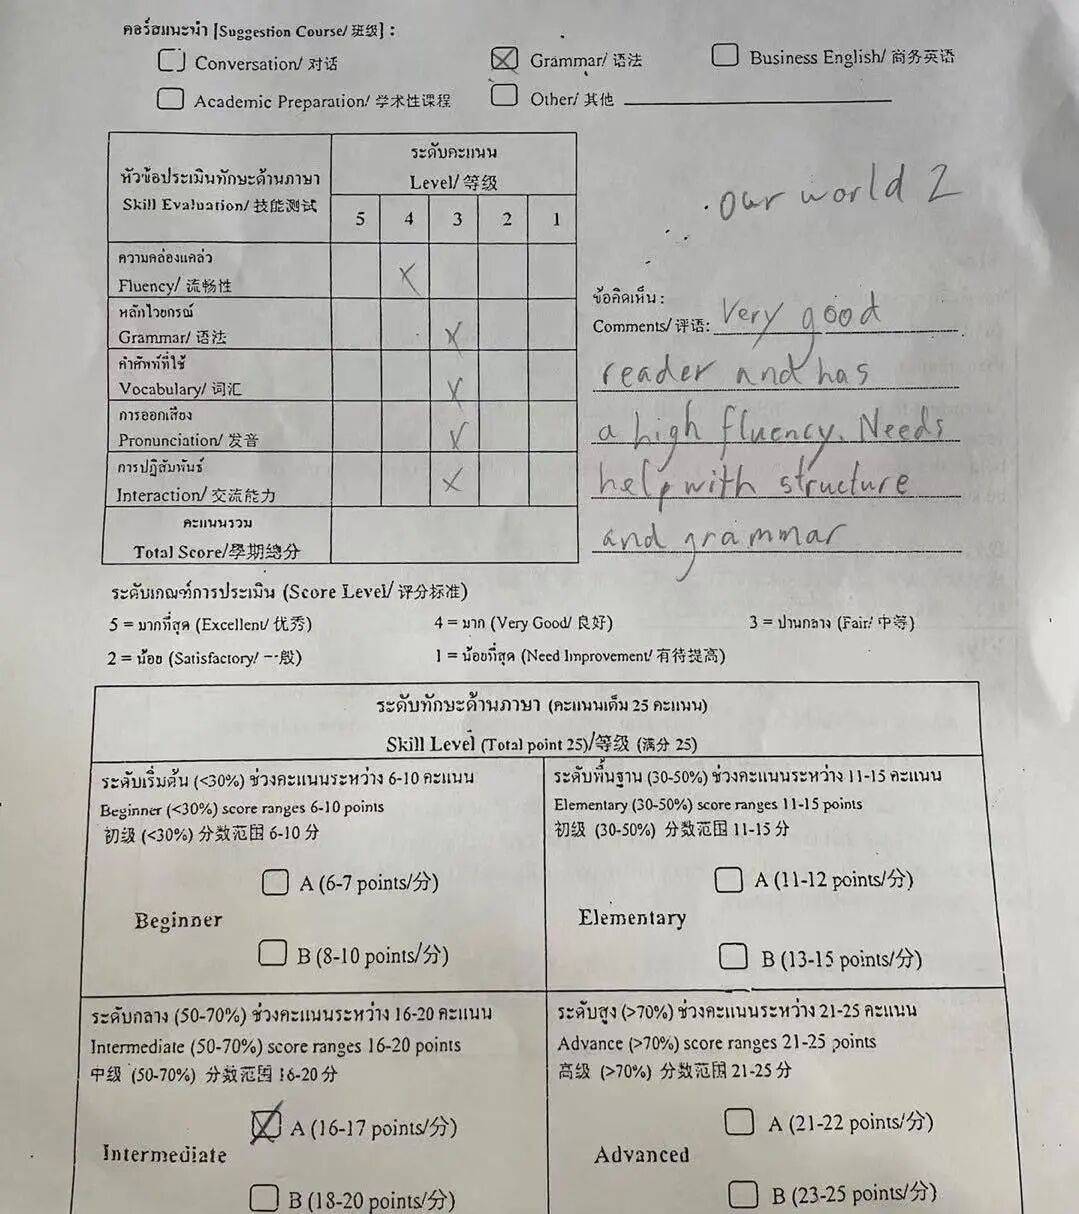 คอร์สแนะนำ [Suggestion Course/ 班级] :
Conversation/ 对话
Grammar/ 语法
Business English/ 商务英语
Academic Preparation/ 学术性课程
Other/ 其他
หัวข้อประเมินทักษะด้านภาษา
Skill Evaluation/ 技能测试
ระดับคะแนน
Level/ 等级
5 4 3 2 1
ความคล่องแคล่ว
Fluency/ 流畅性
หลักไวยกรณ์
Grammar/ 语法
คำศัพท์ที่ใช้
Vocabulary/ 词汇
การออกเสียง
Pronunciation/ 发音
การปฏิสัมพันธ์
Interaction/ 交流能力
คะแนนรวม
Total Score/學期總分
our world 2
ข้อคิดเห็น :
Comments/ 评语: Very good
reader and has
a high fluency. Needs
help with structure
and grammar
ระดับเกณฑ์การประเมิน (Score Level/ 评分标准)
5 = มากที่สุด (Excellent/ 优秀) 4 = มาก (Very Good/ 良好) 3 = ปานกลาง (Fair/ 中等)
2 = น้อย (Satisfactory/ 一般) 1 = น้อยที่สุด (Need Improvement/ 有待提高)
ระดับทักษะด้านภาษา (คะแนนเต็ม 25 คะแนน)
Skill Level (Total point 25)/等级 (满分 25)
ระดับเริ่มต้น (<30%) ช่วงคะแนนระหว่าง 6-10 คะแนน
Beginner (<30%) score ranges 6-10 points
初级 (<30%) 分数范围 6-10 分
A (6-7 points/分)
Beginner
B (8-10 points/分)
ระดับพื้นฐาน (30-50%) ช่วงคะแนนระหว่าง 11-15 คะแนน
Elementary (30-50%) score ranges 11-15 points
初级 (30-50%) 分数范围 11-15 分
A (11-12 points/分)
Elementary
B (13-15 points/分)
ระดับกลาง (50-70%) ช่วงคะแนนระหว่าง 16-20 คะแนน
Intermediate (50-70%) score ranges 16-20 points
中级 (50-70%) 分数范围 16-20 分
A (16-17 points/分)
Intermediate
B (18-20 points/分)
ระดับสูง (>70%) ช่วงคะแนนระหว่าง 21-25 คะแนน
Advance (>70%) score ranges 21-25 points
高级 (>70%) 分数范围 21-25 分
A (21-22 points/分)
Advanced
B (23-25 points/分)